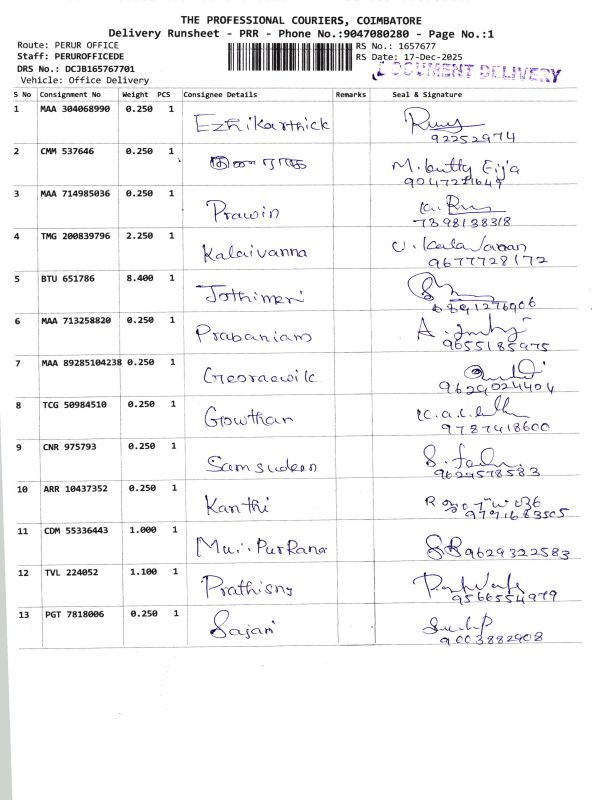 THE PROFESSIONAL COURIERS, COIMBATORE
Delivery Runsheet - PRR - Phone No.:9047080280 - Page No.:1
Route: PERUR OFFICE
RS No.: 1657677
Staff: PERUROFFICEDE
RS Date: 17-Dec-2025
DRS No.: DCJB165767701
DOCUMENT DELIVERY
Vehicle: Office Delivery
S No Consignment No Weight PCS Consignee Details Remarks Seal & Signature
1 MAA 304068990 0.250 1 Ezhikarthick
92252974
2 CMM 537646 0.250 1 M.
3 MAA 714985036 0.250 1 Prawin
7398138318
4 TMG 200839796 2.250 1 Kalaivanna
9677728172
5 BTU 651786 8.400 1 Jothimeri
6 MAA 713258820 0.250 1 Prabaniam A.
9655185975
7 MAA 89285104238 0.250 1
9629024404
8 TCG 50984510 0.250 1 Gowthan
9787418600
9 CNR 975793 0.250 1 Samsudeen
9629578583
10 ARR 10437352 0.250 1 Kanthi
9791683505
11 CDM 55336443 1.000 1 9629322583
12 TVL 224052 1.100 1
9566554979
13 PGT 7818006 0.250 1 Sajani
9003882908